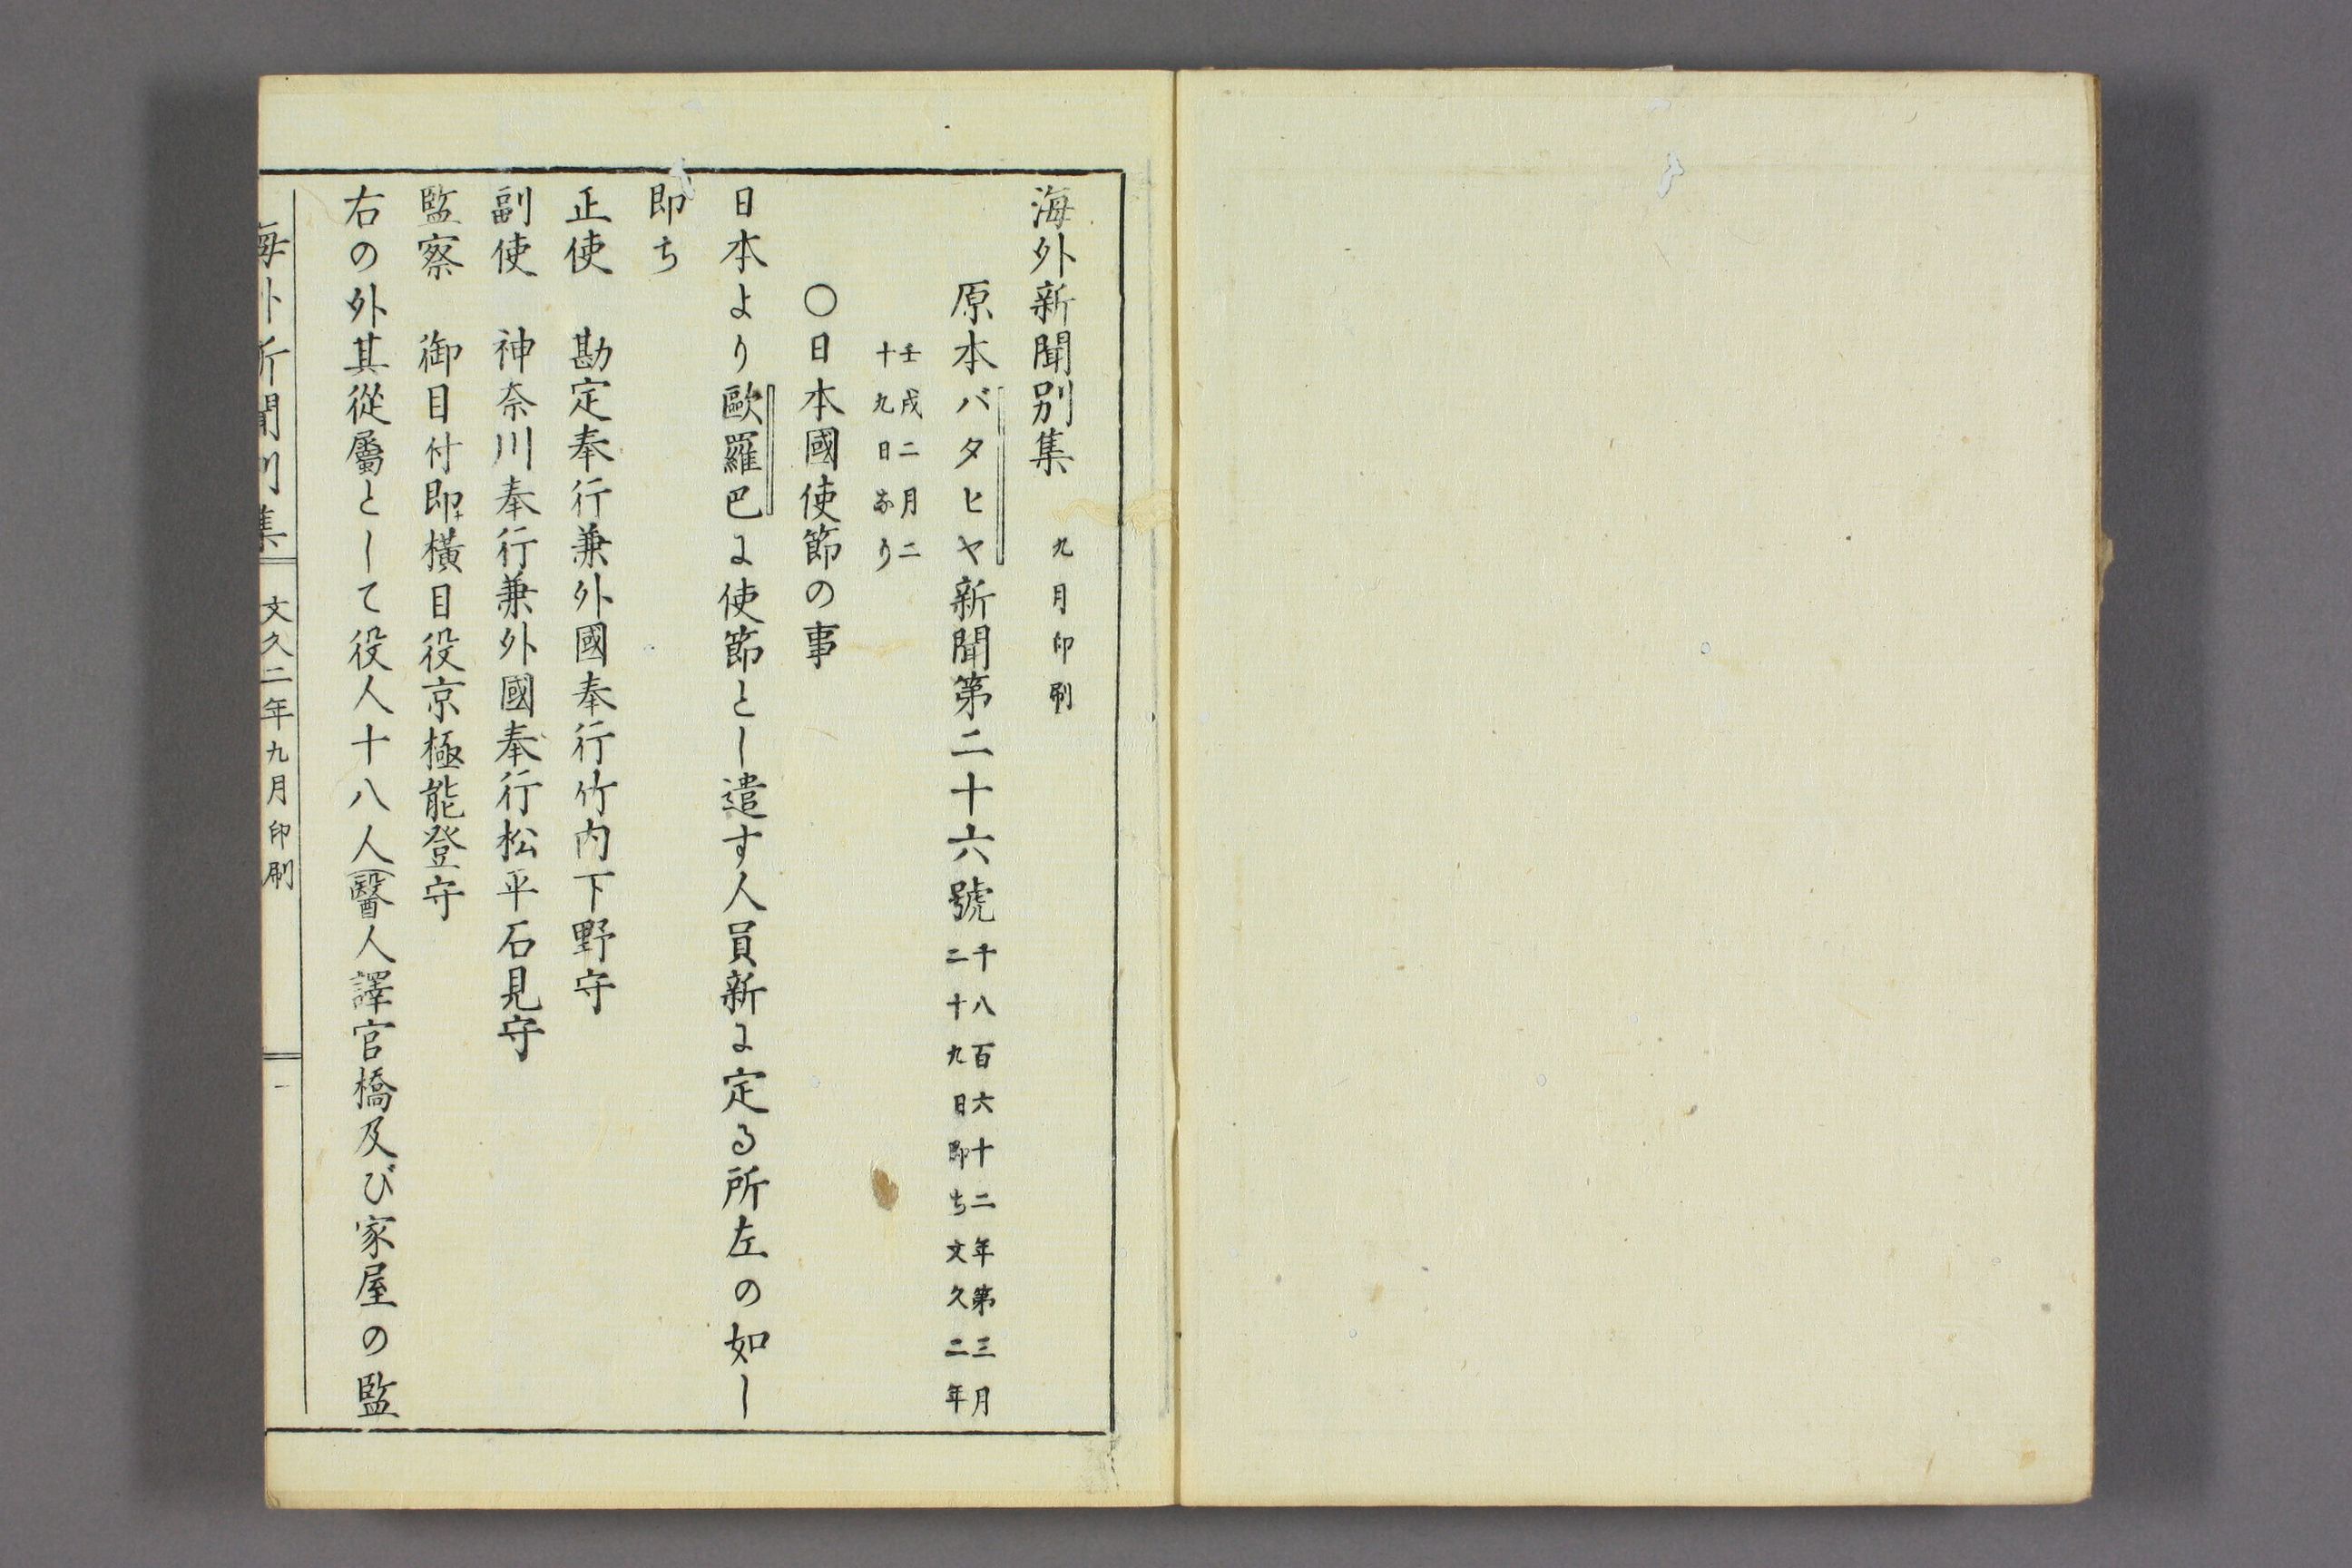 海外新聞別集　九月印刷
原本バタヒヤ新聞第二十六號　千八百六十二年第三月
二十九日即ち文久二年
壬戌二月二
十九日なり
〇日本國使節の事
日本より歐羅巴に使節とし遣す人員新に定る所左の如し
即ち
正使　勘定奉行兼外國奉行竹内下野守
副使　神奈川奉行兼外國奉行松平石見守
監察　御目付即横目役京極能登守
右の外其從屬として役人十八人(醫人譯官橋及び家屋の監
海外新聞別集　文久二年九月印刷　一